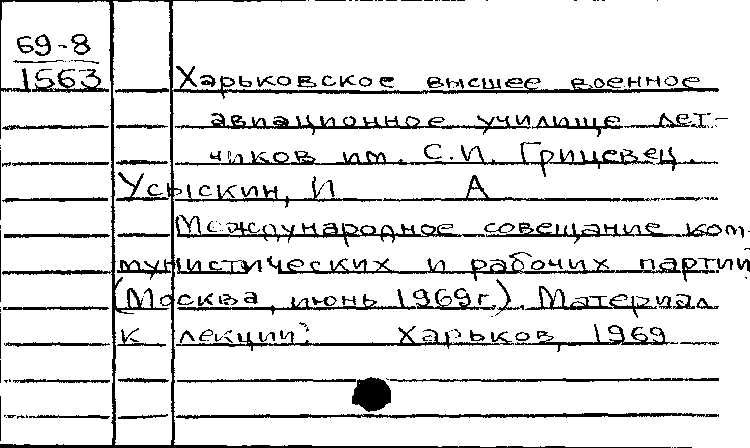 69-8
1563
Харьковское высшее военное
авиационное училище лет-
чиков им. С.И. Грицевец.
Усыскин, И А
Международное совещание ком-
мунистических и рабочих партий
(Москва, июнь 1969г.). Материал
к лекции. Харьков, 1969